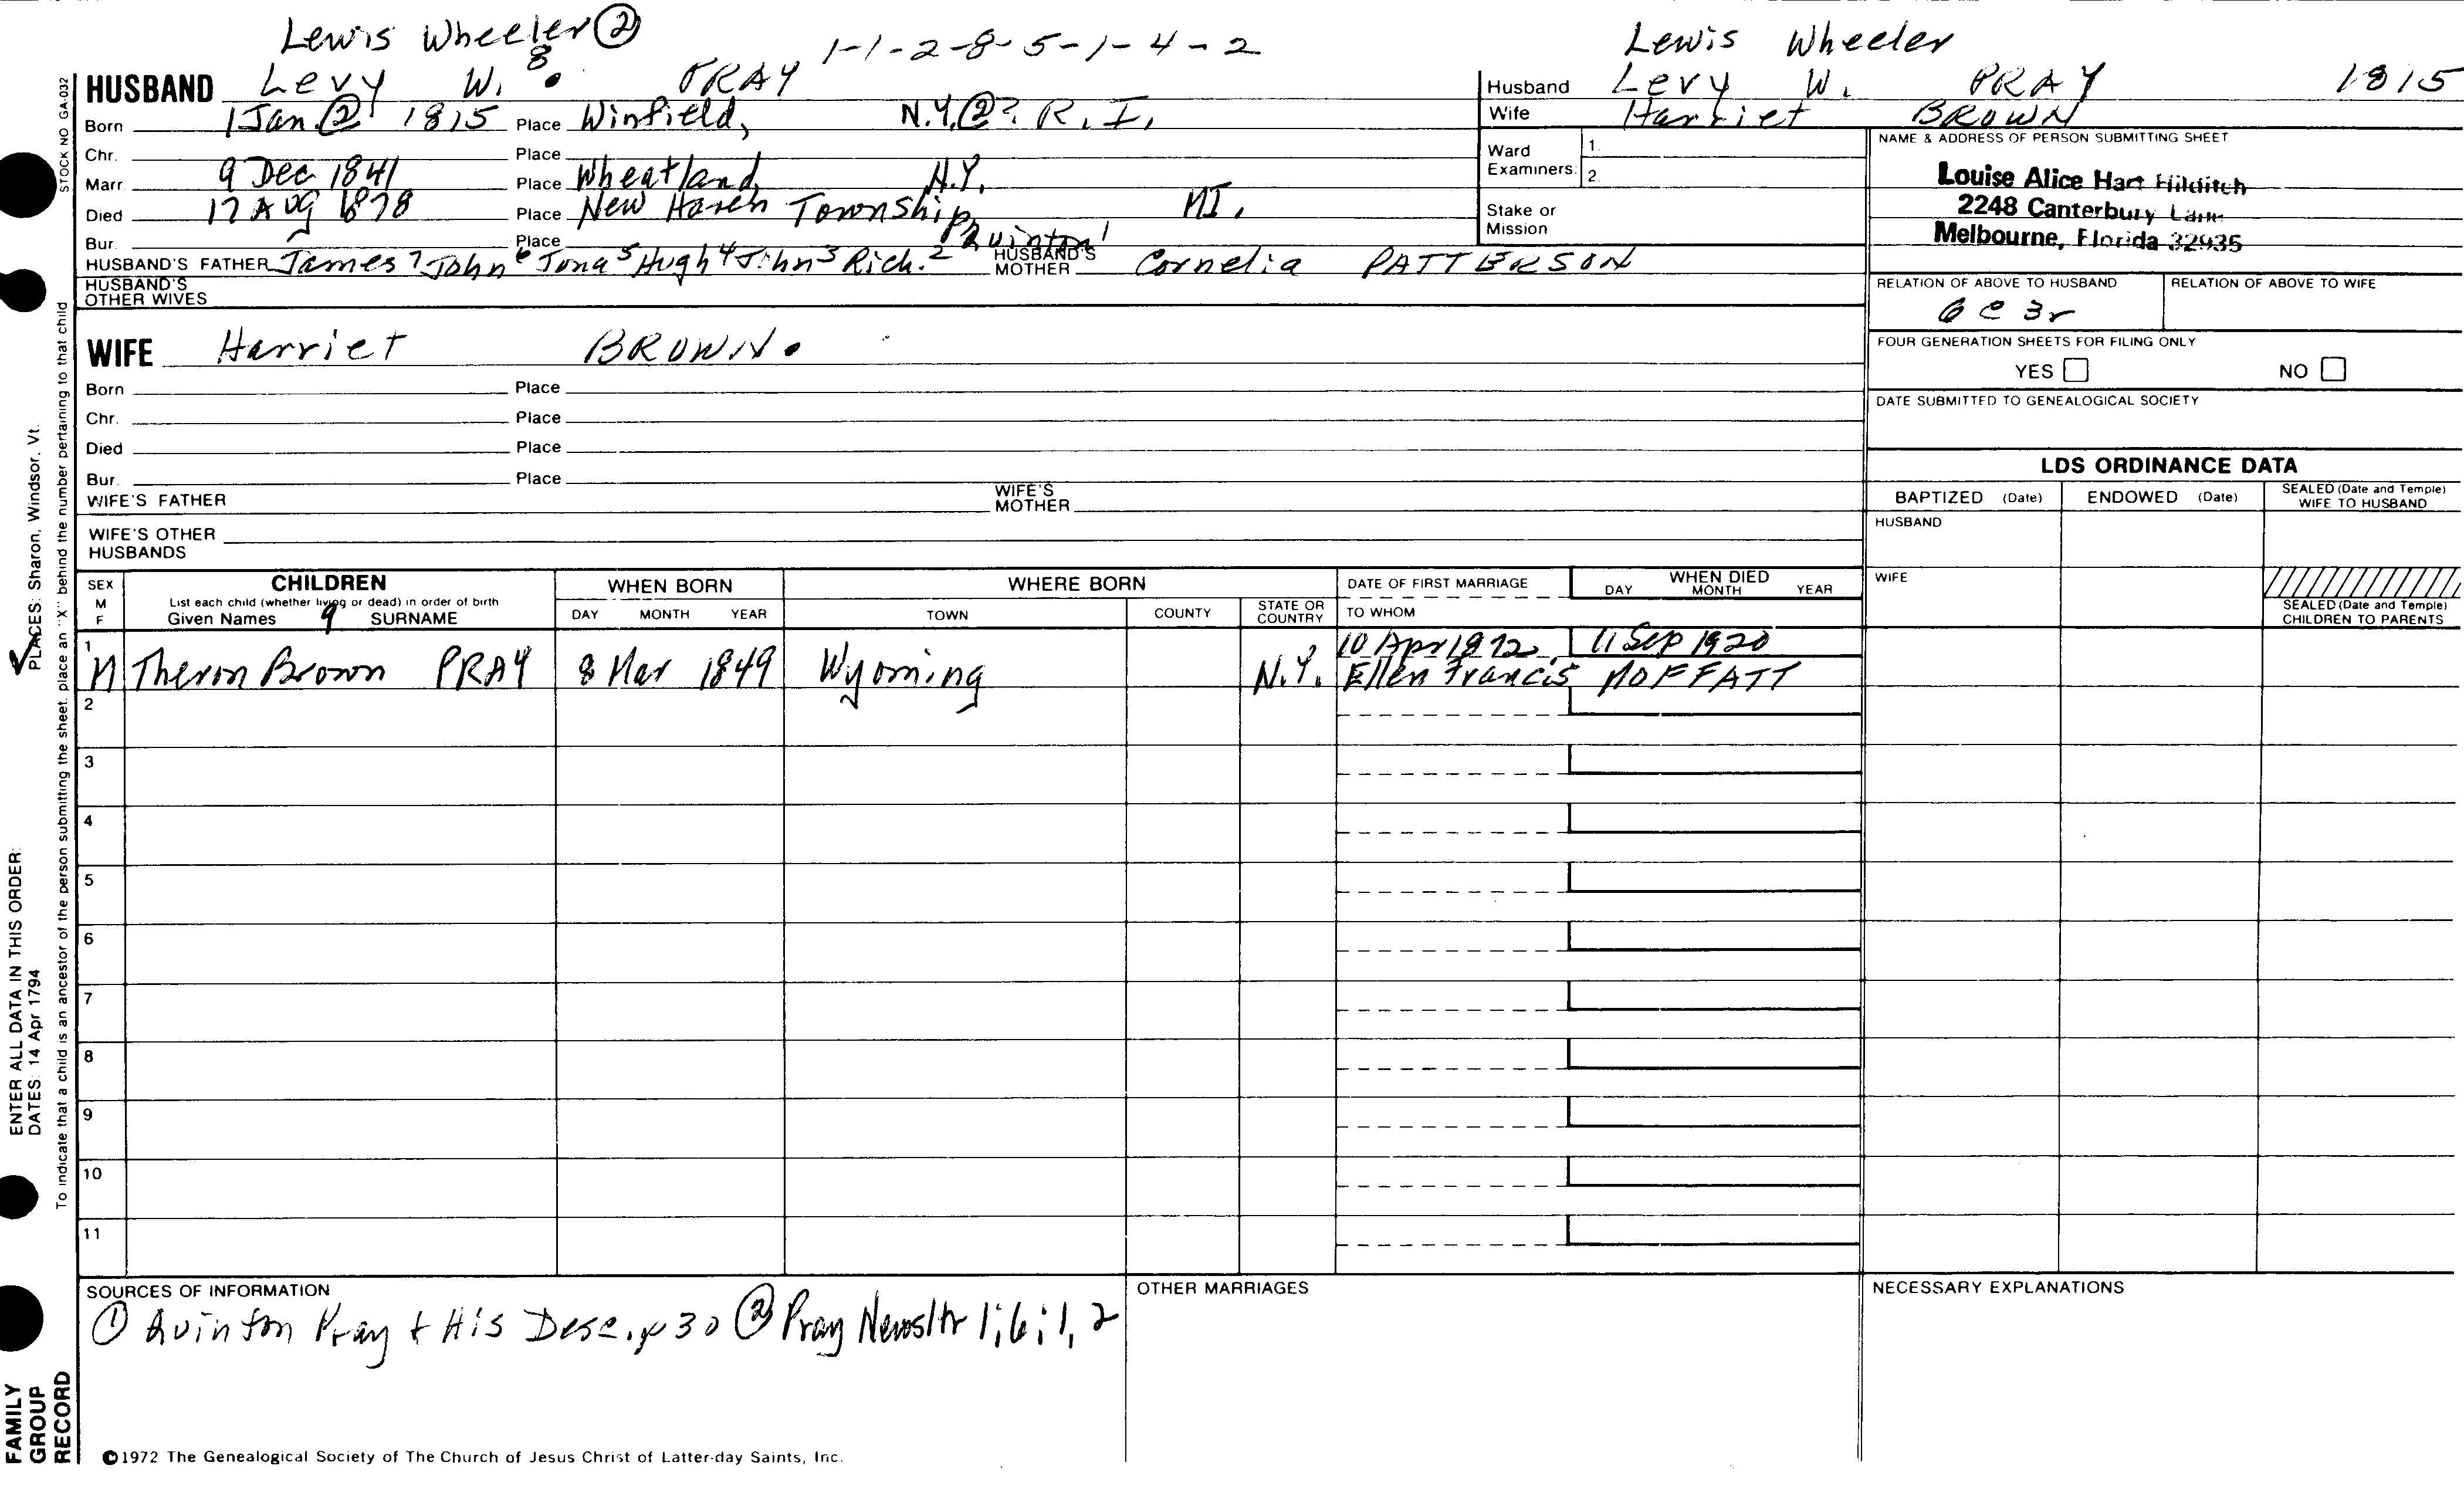 Lewis Wheeler ②
1-1-2-8-5-1-4-2
Lewis Wheeler
HUSBAND Levy W. 8 PRAY
Husband Levy W. PRAY 1815
Born 1 Jan ② 1815 Place Winfield, N.Y. ②? R.I.
Wife Harriet BROWN
Chr. Place
Marr. 9 Dec 1841 Place Wheatland, N.Y.
Died 17 Aug 1878 Place New Haven Township, MI.
Bur. Place
Quinton 1
HUSBAND'S FATHER James 7 John 6 Jona 5 Hugh 4 John 3 Rich. 2 HUSBAND'S MOTHER Cornelia PATTERSON
HUSBAND'S OTHER WIVES
Ward Examiners: 1. 2.
Stake or Mission
NAME & ADDRESS OF PERSON SUBMITTING SHEET
Louise Alice Hart Hilditch
2248 Canterbury Lane
Melbourne, Florida 32935
RELATION OF ABOVE TO HUSBAND RELATION OF ABOVE TO WIFE
6 C 3r
FOUR GENERATION SHEETS FOR FILING ONLY
YES NO
DATE SUBMITTED TO GENEALOGICAL SOCIETY
WIFE Harriet BROWN.
Born Place
Chr. Place
Died Place
Bur. Place
WIFE'S FATHER WIFE'S MOTHER
WIFE'S OTHER HUSBANDS
LDS ORDINANCE DATA
BAPTIZED (Date) ENDOWED (Date) SEALED (Date and Temple) WIFE TO HUSBAND
HUSBAND
WIFE
SEALED (Date and Temple) CHILDREN TO PARENTS
SEX M F
CHILDREN
List each child (whether living or dead) in order of birth
Given Names 9 SURNAME
WHEN BORN
DAY MONTH YEAR
WHERE BORN
TOWN COUNTY STATE OR COUNTRY
DATE OF FIRST MARRIAGE
TO WHOM
WHEN DIED
DAY MONTH YEAR
10 Apr 1872 11 Sep 1920
1 M Theron Brown PRAY 8 Mar 1849 Wyoming N.Y. Ellen Francis MOFFATT
2
3
4
5
6
7
8
9
10
11
SOURCES OF INFORMATION
① Quinton Pray & His Desc. p 30 ② Pray Newsltr 1;6;1, 2
OTHER MARRIAGES
NECESSARY EXPLANATIONS
©1972 The Genealogical Society of The Church of Jesus Christ of Latter-day Saints, Inc.
STOCK NO GA-032
To indicate that a child is an ancestor of the person submitting the sheet, place an "X" behind the number pertaining to that child
ENTER ALL DATA IN THIS ORDER:
DATES: 14 Apr 1794
PLACES: Sharon, Windsor, Vt.
FAMILY
GROUP
RECORD